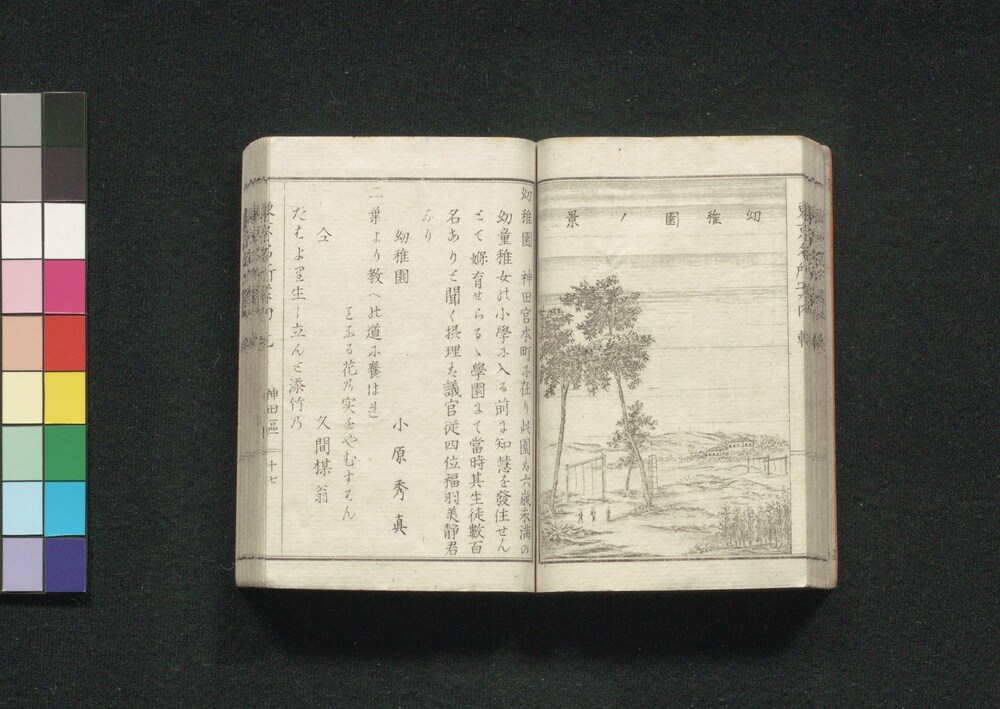 幼稚園ノ景
幼稚園 神田宮本町に在り此園は六歳未満の
幼童稚女の小學に入る前に知慧を發住せん
とて㛹育せらるゝ學園にて當時其生徒數百
名ありと聞く摂理は議官従四位福羽美静君
なり
幼稚園 小原秀真
二葉より教への道に養はれ
をふる花乃実をやむすそん
仝 久間楳翁
たはよ里生し立んと添竹乃
神田區 十七